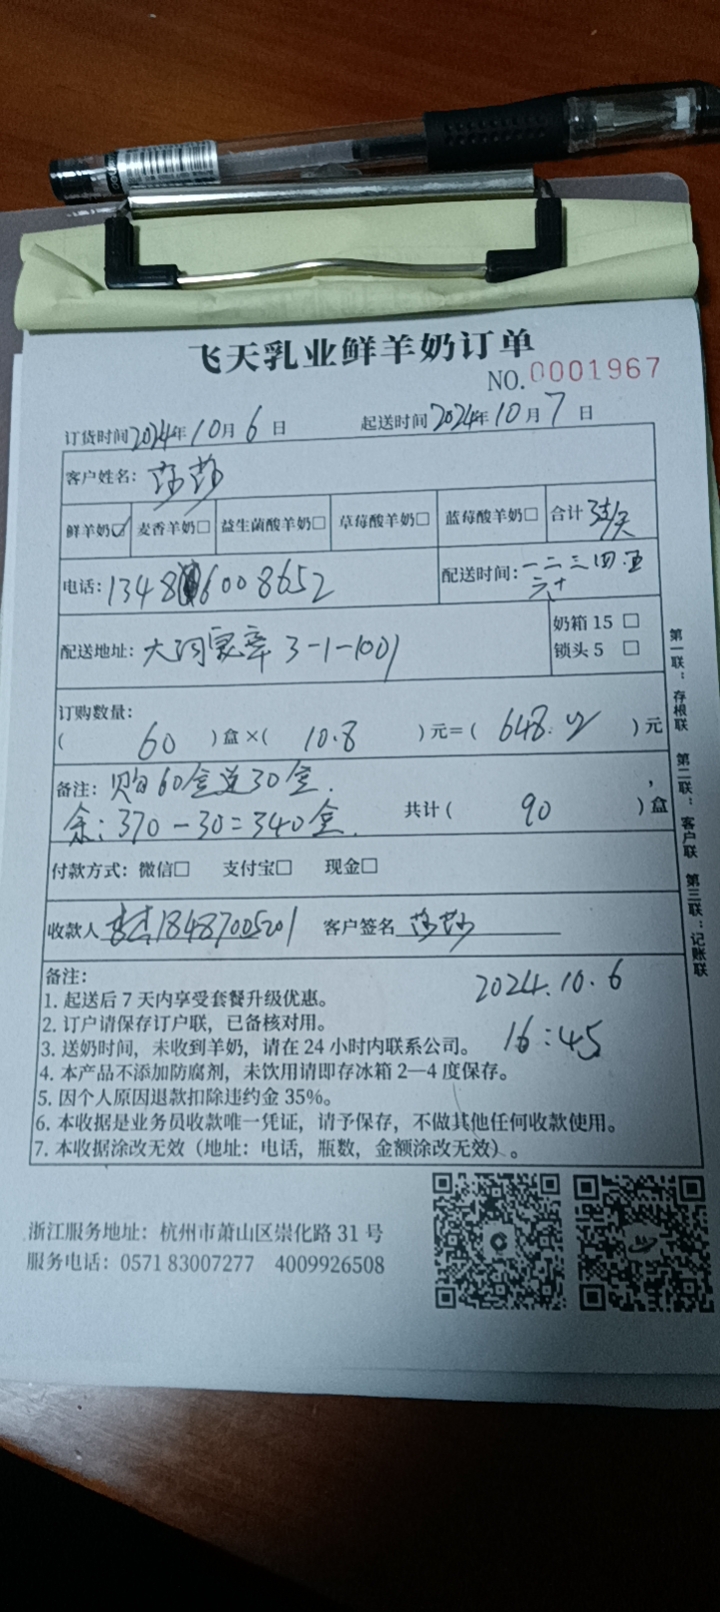 飞天乳业鲜羊奶订单
NO.0001967
订货时间2024年10月6日 起送时间2024年10月7日
客户姓名：莎莎
鲜羊奶☑ 麦香羊奶□ 益生菌酸羊奶□ 草莓酸羊奶□ 蓝莓酸羊奶□ 合计 3盒/天
电话：13486008652 配送时间：一二三四.五
六
配送地址：大河宸章 3-1-1001 奶箱 15 □
锁头 5 □
订购数量：
(60)盒×(10.8)元=(648.)元
备注：购60盒送30盒.
余：370-30=340盒. 共计(90)盒
付款方式：微信□ 支付宝□ 现金□
收款人 18487005201 客户签名 莎莎
备注：
2024.10.6
1. 起送后 7 天内享受套餐升级优惠。
2. 订户请保存订户联，已备核对用。
16:45
3. 送奶时间，未收到羊奶，请在 24 小时内联系公司。
4. 本产品不添加防腐剂，未饮用请即存冰箱 2—4 度保存。
5. 因个人原因退款扣除违约金 35%。
6. 本收据是业务员收款唯一凭证，请予保存，不做其他任何收款使用。
7. 本收据涂改无效（地址：电话，瓶数，金额涂改无效）。
第一联：存根联 第二联：客户联 第三联：记账联
浙江服务地址：杭州市萧山区崇化路 31 号
服务电话：0571 83007277 4009926508